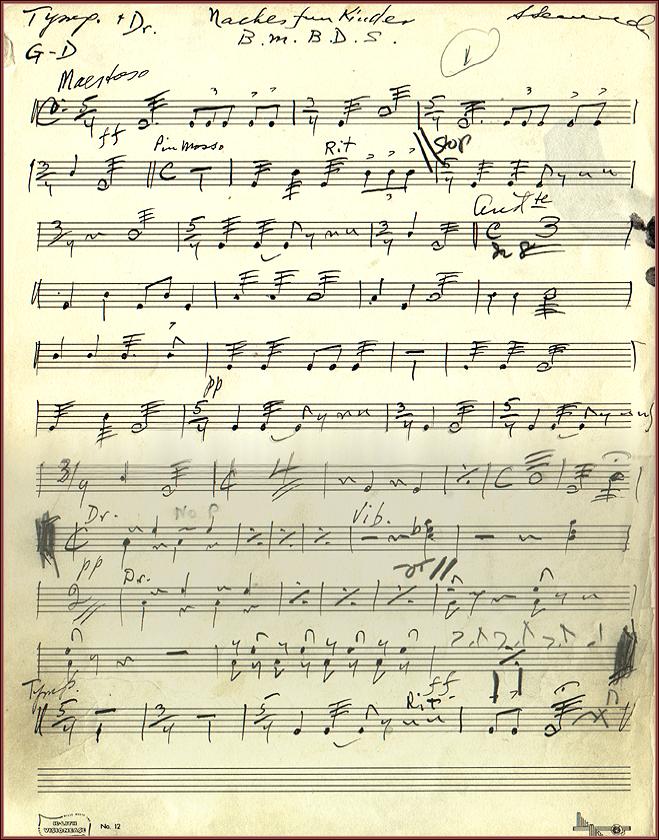 Tymp. + Dr. Naches fun Kinder
B.M.B.D.S.
G-D
1
Maestoso
ff
Piu mosso Rit Stop
Andte
pp
Dr. No P Vib.
pp Dr.
Tymp. ff
Rit.
K-LITH
VISIONEASE No. 12